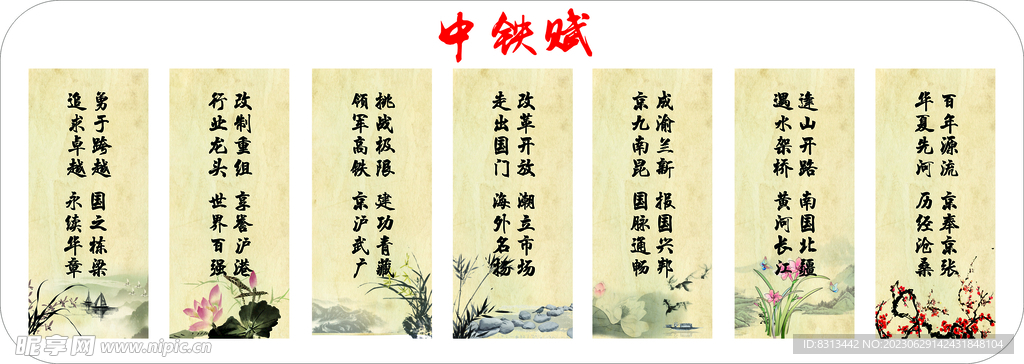 中铁赋
百年源流 京奉京张
华夏先河 历经沧桑
逢山开路 南国北疆
遇水架桥 黄河长江
成渝兰新 报国兴邦
京九南昆 国脉通畅
改革开放 潮立市场
走出国门 海外名扬
挑战极限 建功青藏
领军高铁 京沪武广
改制重组 享誉沪港
行业龙头 世界百强
勇于跨越 国之栋梁
追求卓越 永续华章
昵享网 www.nipic.cn
ID:8313442 NO:20230629142431848104